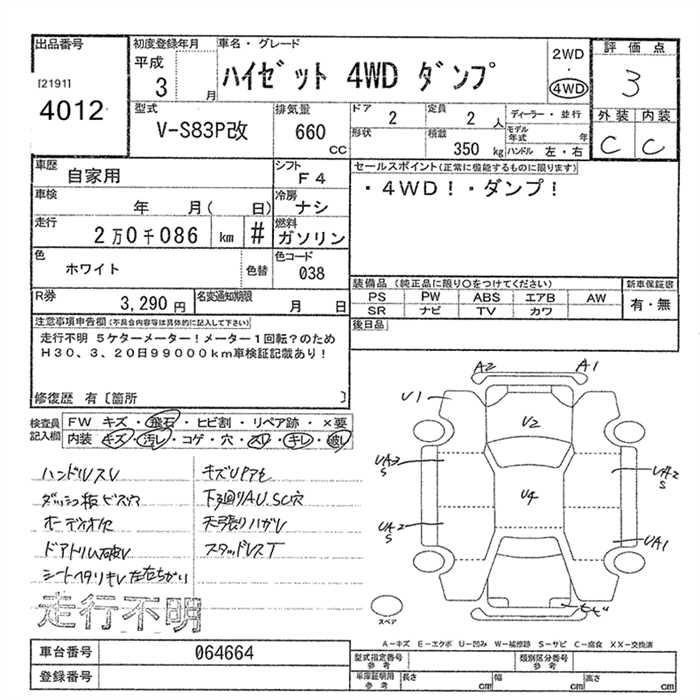 出品番号
[2191]
4012
初度登録年月
平成
3
月
車名・グレード
ハイゼット 4WD ダンプ
2WD
・
4WD
評価点
3
外装 内装
C C
型式
V-S83P改
排気量
660
CC
ドア
2
定員
2 人
ディーラー・並行
形状
積載
350 kg
モデル年式
年
ハンドル 左・右
車歴
自家用
シフト
F4
車検
年 月( 日)
冷房
ナシ
走行
2万0千086 km #
燃料
ガソリン
色
ホワイト
色替
色コード
038
R券
3,290 円
名変通知期限
月 日
セールスポイント(正常に機能するものに限ります)
・4WD!・ダンプ!
装備品 (純正品に限り○をつけてください)
PS PW ABS エアB AW
SR ナビ TV カワ
新車保証書
有・無
後日品
注意事項申告欄(不具合内容等は具体的に記入して下さい)
走行不明 5ケタメーター!メーター1回転?のため
H30、3、20日99000km車検証記載あり!
修復歴 有〔箇所 〕
検査員
記入欄
FW キズ・飛石・ヒビ割・リペア跡・×要
内装 キズ・汚レ・コゲ・穴・スレ・キレ・破レ
ハンドルスレ
ダッシュ板ビス穴
オーディオ欠
ドアトリム破レ
シートヘタリキレ左右ちがい
下廻りAU、SC穴
天張りハガレ
スタッドレスT
走行不明
A2 A1
U1
U2
UA3
S
UA2
S
U4
UA2
S
UA1
スペア
A-キズ E-エクボ U-凹み W-補修跡 S-サビ C-腐食 XX-交換済
車台番号
064664
登録番号
型式指定番号
参考
類別区分番号
参考
車庫証明用
参考
長さ
cm
幅
cm
高さ
cm